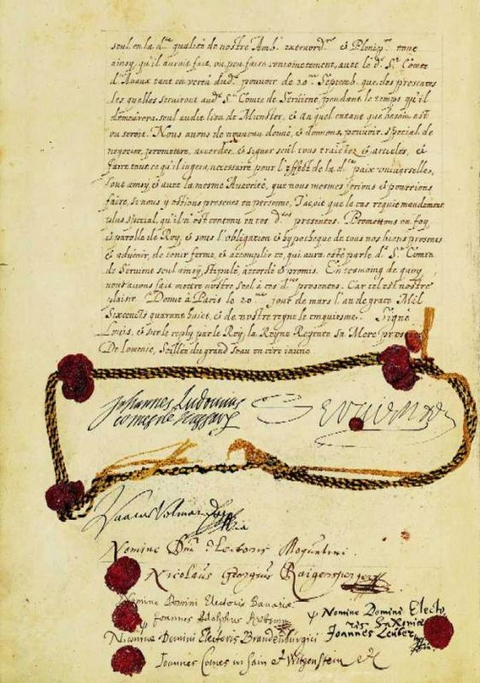 seul en la d.te qualité de nostre Amb.r extraord.re & Plenip.re tout
ainsy, qu'il auroit fait, ou peu faire conjoinctement, avec le d.t S.r Comte
d'Avaux tant en vertu du d.t pouvoir de 20.me Septemb. que des presentes
les quelles serviront aud.t S.r Comte de Servient, pendant le temps qu'il
demeurera, seul audit lieu de Munster, & en quel en tant que besoin est
ou seroit. Nous avons de nouveau donné, & donnons, pouvoir, special de
negocier, promettre, accorder, & signer seul tous traictez & articles, &
faire tout ce qu'il jugera, necessaire pour l'effect de la d.te paix universelle,
tout ainsy, & avec la mesme Auctorité, que nous mesmes ferions & pourrions
faire, si nous y estions presens en personne, Jaçoit que le cas requis mandement
plus special, qu'il n'est contenu en ces d.tes presentes. Promettons en foy
& parolle de Roy, & sous l'obligation & hypotheque de tous nos biens presens
& advenir, de tenir ferme, & accomplir ce, qui aura esté par le d.t S.r Comte
de Servient seul ainsy, stipulé, accordé & promis. En tesmoing de quoy
nous avons fait mettre nostre seel à ces d.tes presentes. Car tel est nostre
plaisir. Donné à Paris le 20.me jour de mars l'an de grace Mil
Sixcents quarant huict, & de nostre regne le cinquiesme. Signé
Louis, & sur le reply par le Roy, la Reyne Regente sa Mere
De Lomenie, Seellé du grand seau en cire jaune
Johannes Ludovicus
comes de Nassau Servient
Isaacus Volmar D.
Nomine Dni Electoris Moguntini.
Nicolaus Georgius Raigersperger
Nomine Domini Electoris Bavariae
Joannes Adolphus
Nomine Domini Electo
ris Saxoniæ
Joannes Leuber
Nomine Domini Electoris Brandenburgici
Joannes Comes in Sain et Witgenstein